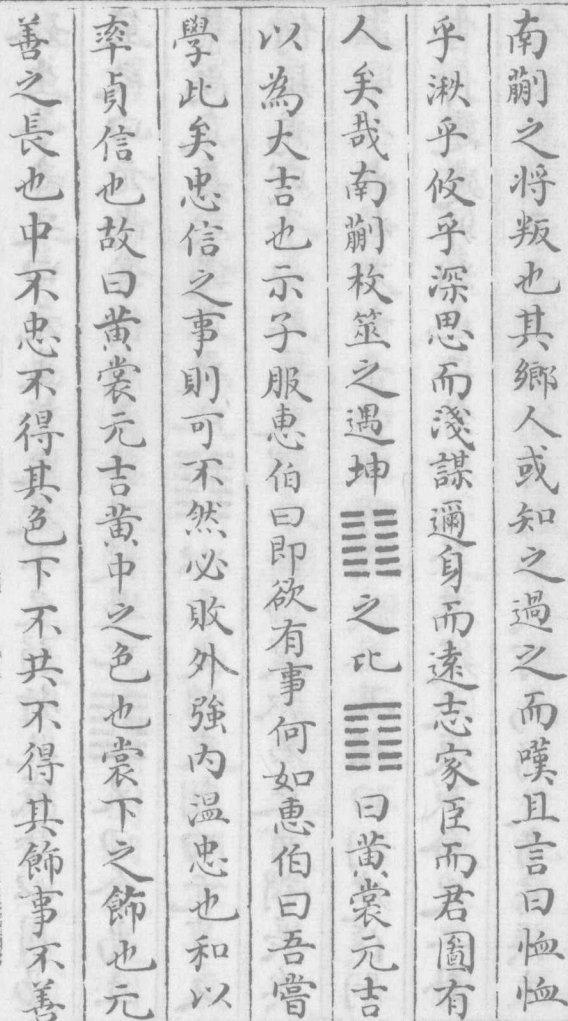 南蒯之将叛也其鄉人或知之過之而嘆且言曰恤恤
乎湫乎攸乎深思而淺謀邇身而遠志家臣而君圖有
人矣哉南蒯枚筮之遇坤䷁之比䷇曰黄裳元吉
以為大吉也示子服惠伯曰即欲有事何如惠伯曰吾嘗
學此矣忠信之事則可不然必敗外強内温忠也和以
率貞信也故曰黄裳元吉黄中之色也裳下之飾也元
善之長也中不忠不得其色下不共不得其飾事不善